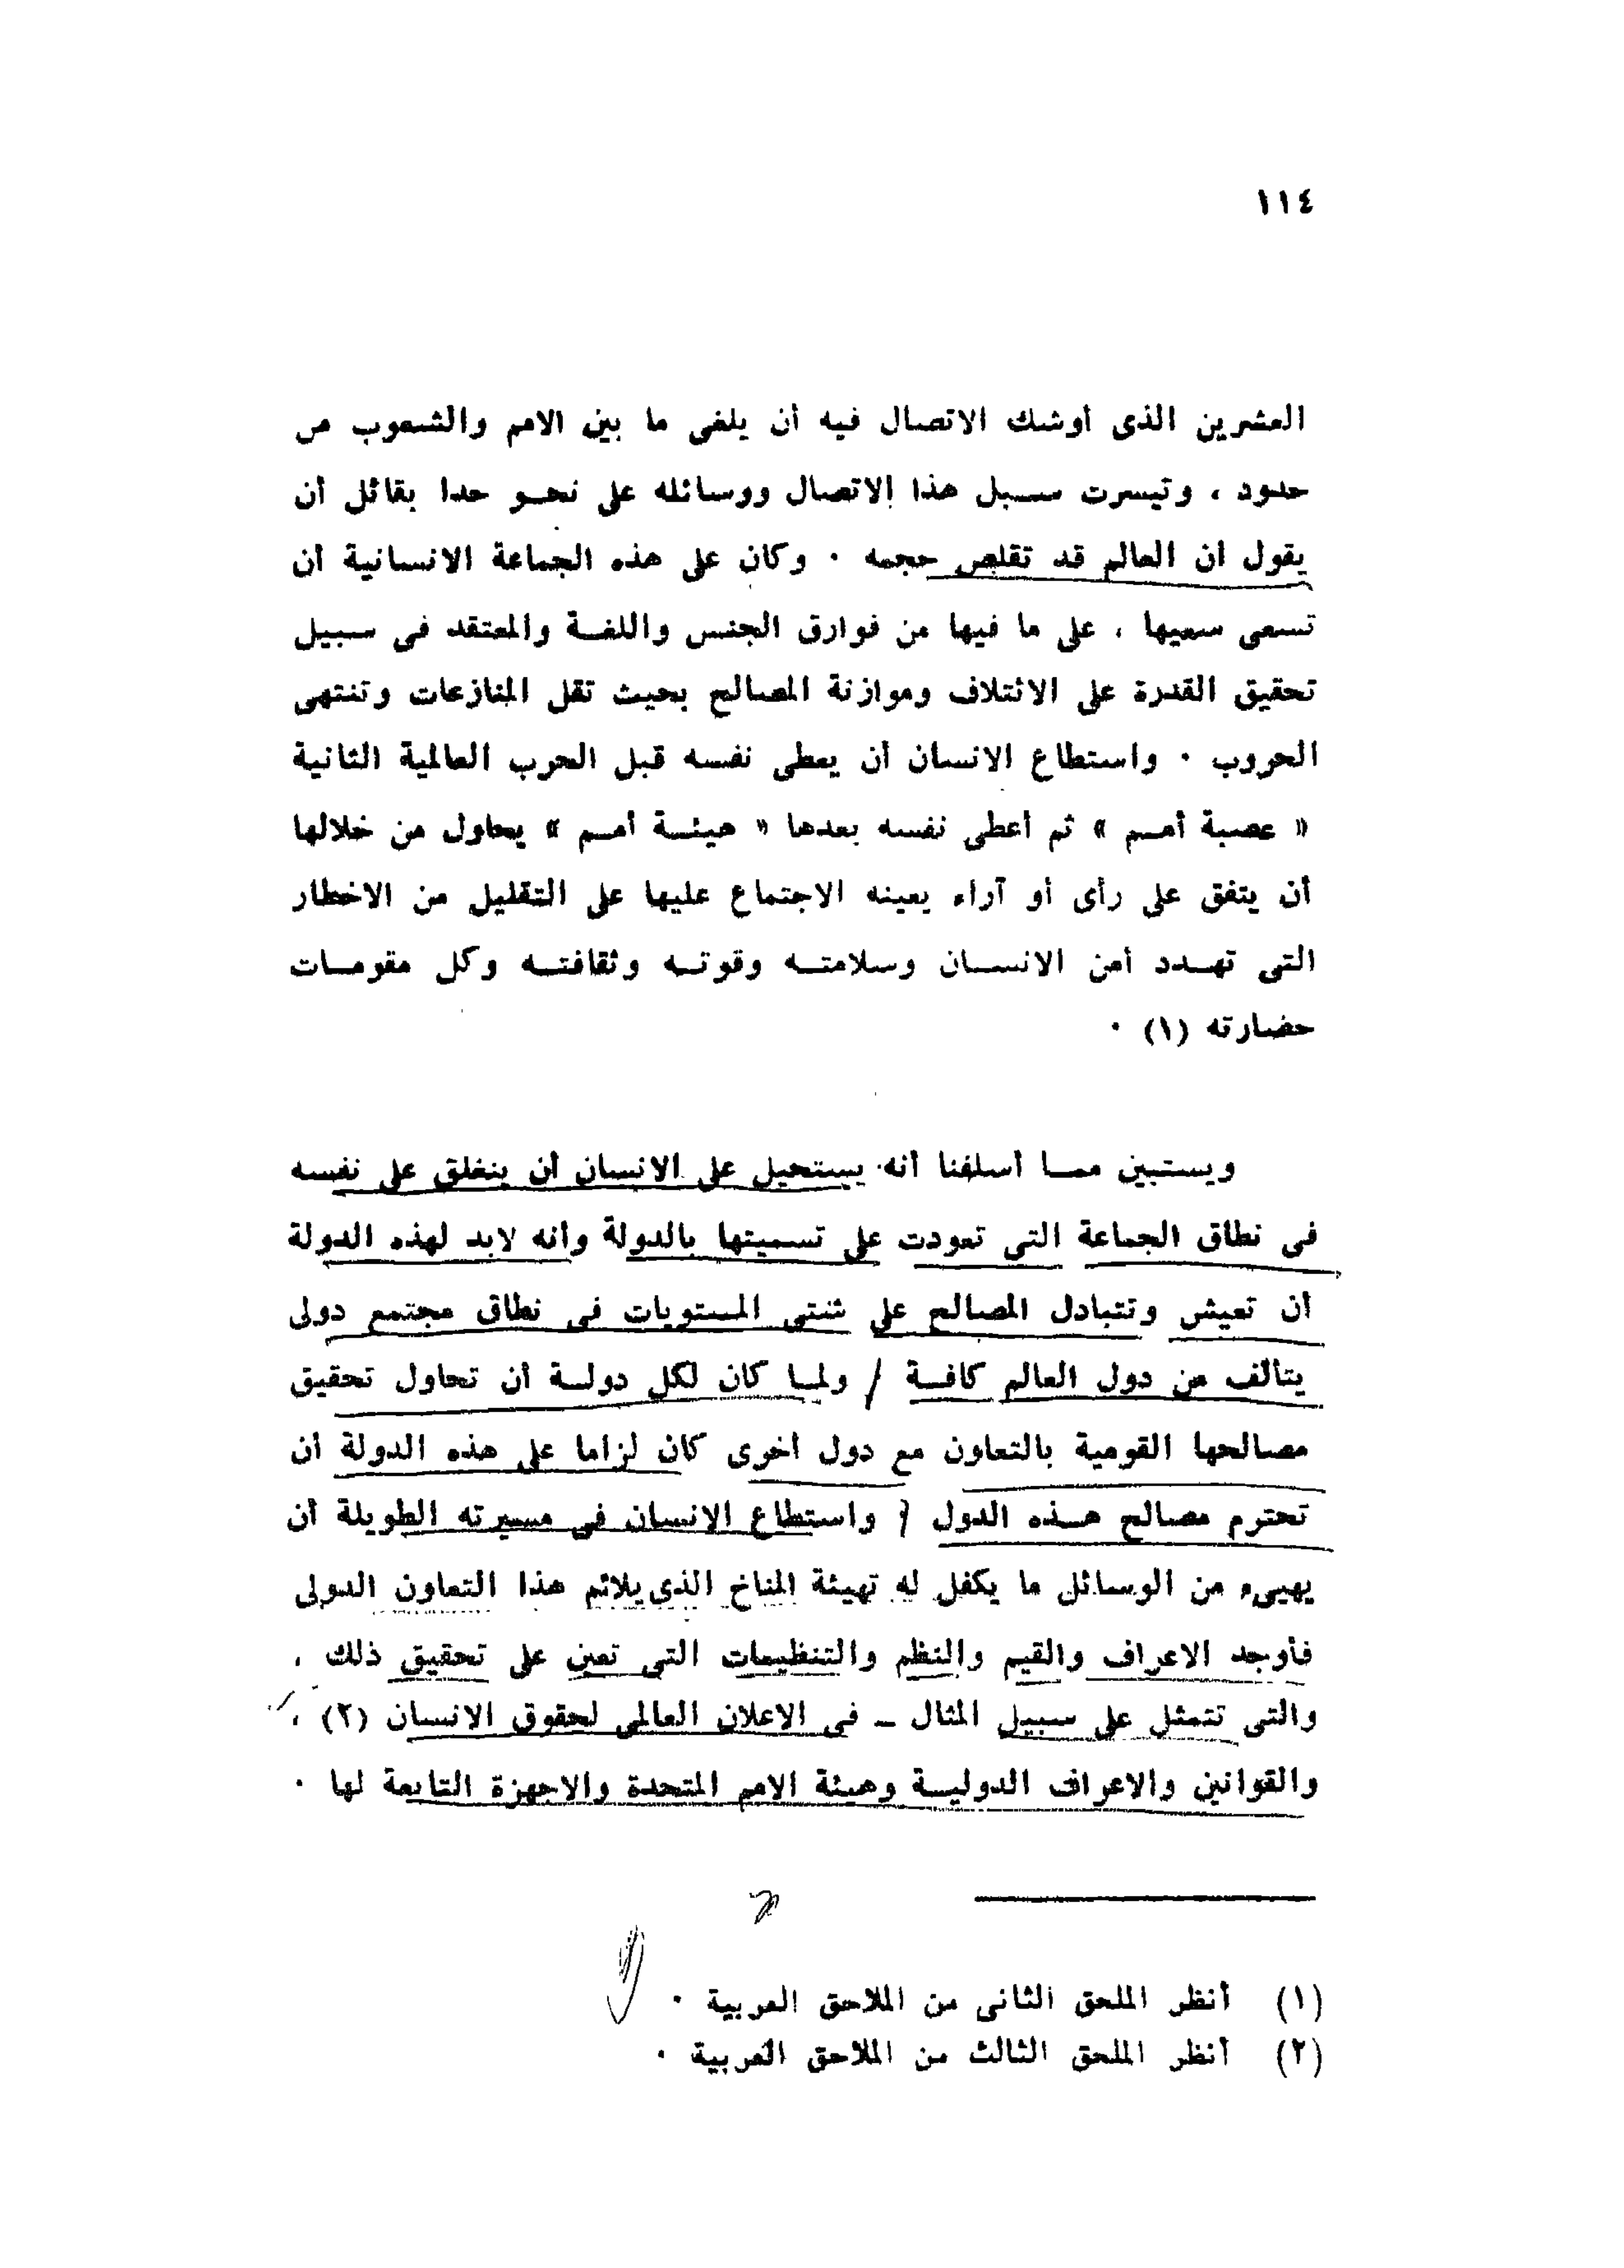 ١١٤
العشرين الذى أوشك الاتصال فيه أن يلغى ما بين الامم والشعوب من
حدود ، وتيسرت سبل هذا الاتصال ووسائله على نحو حدا بقائل أن
يقول أن العالم قد تقلص حجمه . وكان على هذه الجماعة الانسانية أن
تسعى سعيها ، على ما فيها من فوارق الجنس واللغة والمعتقد فى سبيل
تحقيق القدرة على الائتلاف وموازنة المصالح بحيث تقل المنازعات وتنتهى
الحروب . واستطاع الانسان أن يعطى نفسه قبل الحرب العالمية الثانية
« عصبة أمم » ثم أعطى نفسه بعدها « هيئة أمم » يحاول من خلالها
أن يتفق على رأى أو آراء يعينه الاجتماع عليها على التقليل من الاخطار
التى تهدد أمن الانسان وسلامته وقوته وثقافته وكل مقومات
حضارته (١) .
ويستبين مما أسلفنا أنه يستحيل على الانسان أن ينغلق على نفسه
فى نطاق الجماعة التى تعودت على تسميتها بالدولة وأنه لابد لهذه الدولة
أن تعيش وتتبادل المصالح على شتى المستويات فى نطاق مجتمع دولى
يتألف من دول العالم كافة / ولما كان لكل دولة أن تحاول تحقيق
مصالحها القومية بالتعاون مع دول أخرى كان لزاما على هذه الدولة أن
تحترم مصالح هذه الدول / واستطاع الانسان فى مسيرته الطويلة أن
يهيىء من الوسائل ما يكفل له تهيئة المناخ الذى يلائم هذا التعاون الدولى
فأوجد الاعراف والقيم والنظم والتنظيمات التى تعين على تحقيق ذلك ،
والتى تتمثل على سبيل المثال ـ فى الاعلان العالمى لحقوق الانسان (٢) ،
والقوانين والاعراف الدولية وهيئة الامم المتحدة والاجهزة التابعة لها .
(١) أنظر الملحق الثانى من الملاحق العربية .
(٢) أنظر الملحق الثالث من الملاحق العربية .